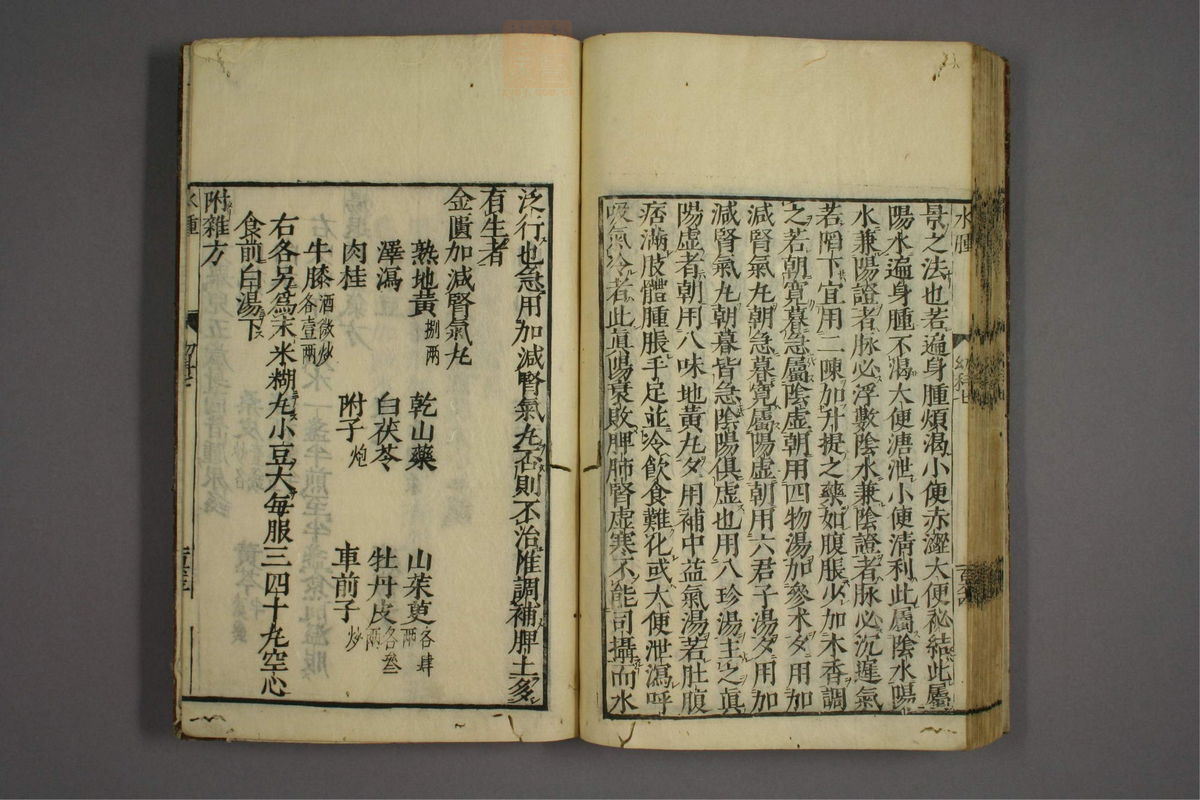 水腫
景之法也若遍身腫煩渴小便赤澀大便祕結此屬
陽水遍身腫不渴大便溏泄小便清利此屬陰水陽
水兼陽證者脉必浮數陰水兼陰證者脉必沉遲氣
若陷下宜用二陳加升提之藥如腹脹少加木香調
之若朝寬暮急屬陰虛朝用四物湯加參术夕用加
減腎氣丸朝急暮寬屬陽虛朝用六君子湯夕用加
減腎氣丸朝暮皆急陰陽俱虛也用八珍湯主之眞
陽虛者朝用八味地黃丸夕用補中益氣湯若肚腹
痞滿肢體腫脹手足並冷飲食難化或大便泄瀉呼
吸氣冷者此眞陽衰敗脾肺腎虛寒不能司攝而水
泛行也急用加減腎氣丸否則不治惟調補脾土多
有生者
金匱加減腎氣丸
熟地黃捌兩 乾山藥 山茱萸各肆兩
澤瀉 白茯苓 牡丹皮各叄兩
肉桂 附子炮 車前子炒
牛膝酒微炒各壹兩
右各另爲末米糊丸小豆大每服三四十丸空心
食前白湯下
附雜方
水腫